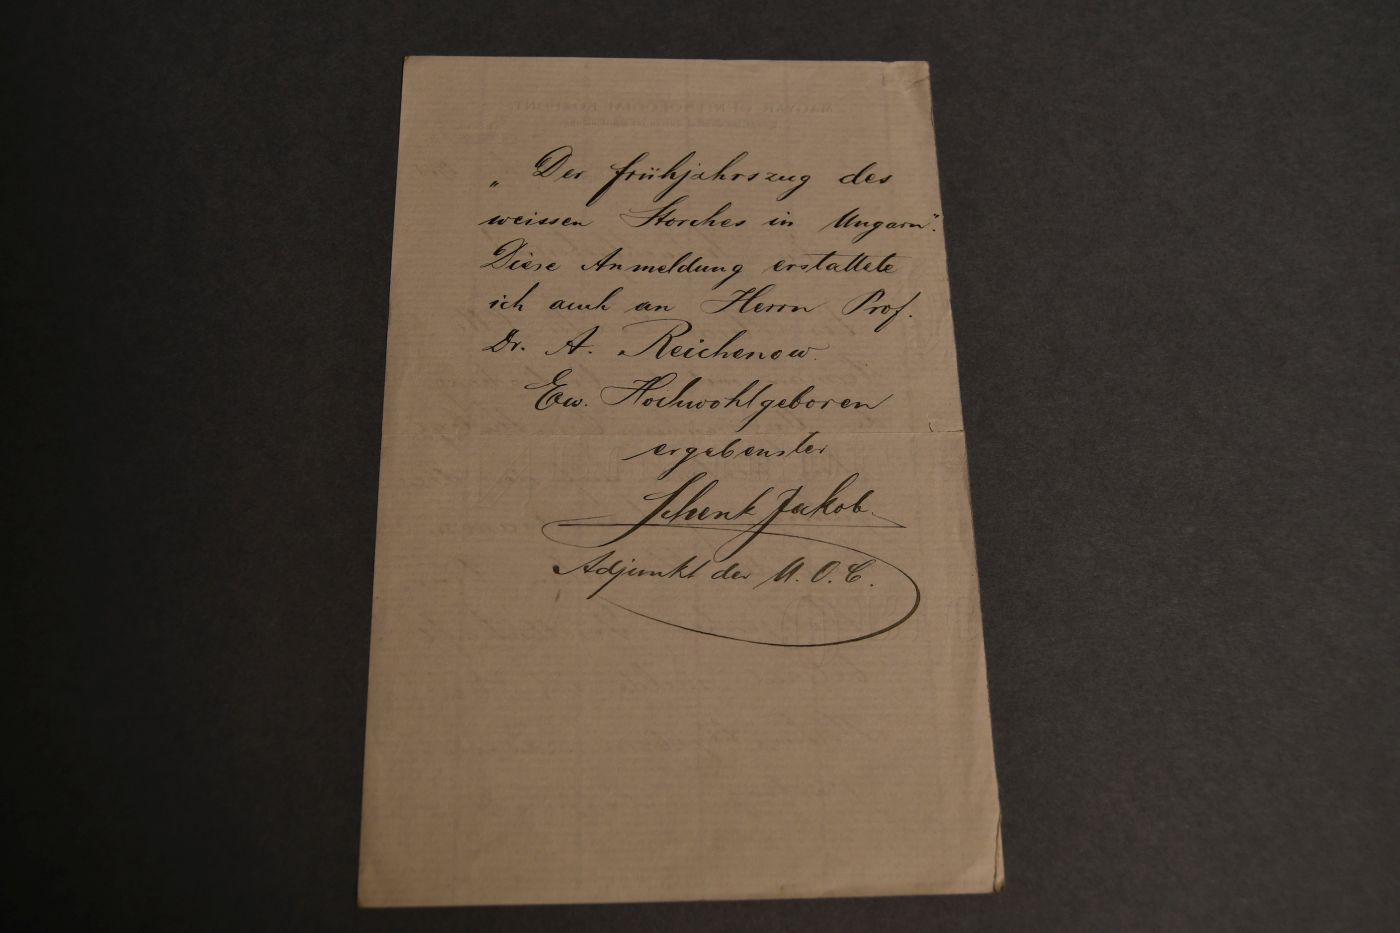 „Der Frühjahrszug des
weissen Storches in Ungarn“.
Diese Anmeldung erstattete
ich auch an Herrn Prof.
Dr. A. Reichenow.
Ew. Hochwohlgeboren
ergebenster
Schenk Jakob.
Adjunkt der U. O. C.